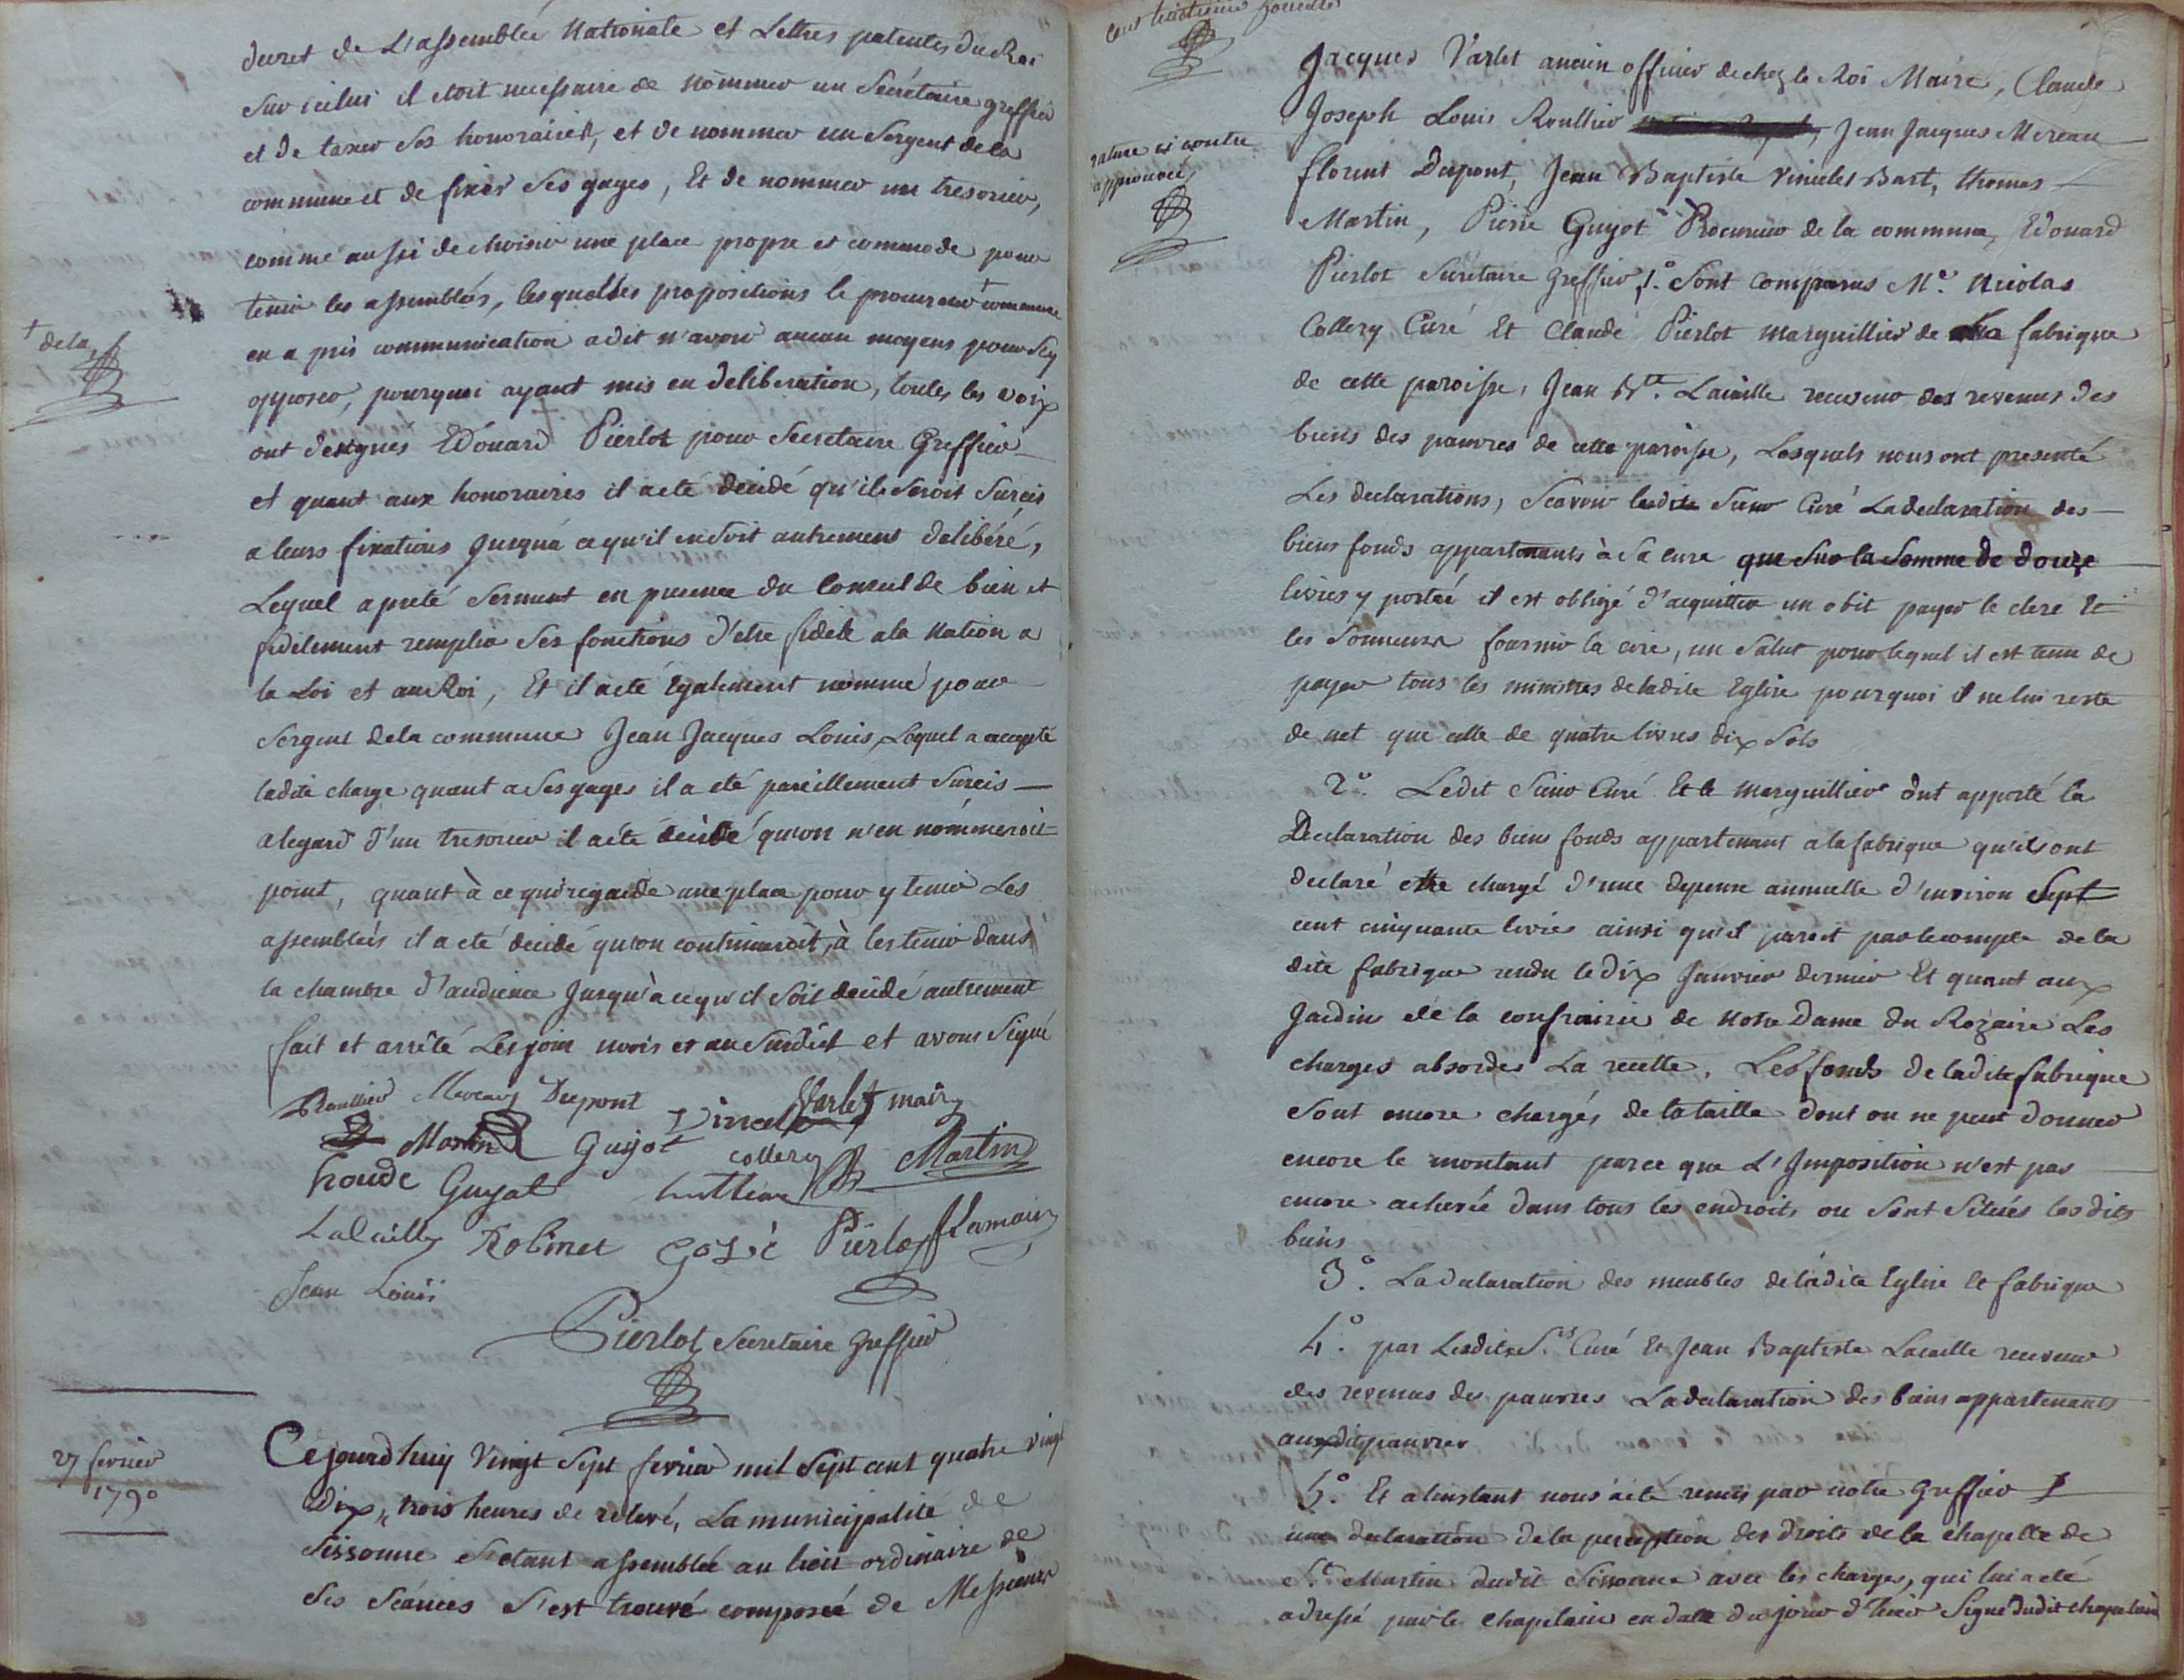 decret de L'assemblée Nationale et Lettres patentes du Roi
sur icelui il etoit necessaire de nommer un Secrétaire greffier
et de taxer ses honoraires, et de nommer un Sergent de la
commune et de fixer ses gages, Et de nommer un tresorier,
comme aussi de choisir une place propre et commode pour
tenir les assemblées, lesquelles propositions le procureur + commune
+ de la
en a pris communication a dit n'avoir aucun moyens pour s'y
opposer, pourquoi ayant mis en deliberation, toutes les voix
ont designés Edouard Pierlot pour Secretaire Greffier
et quant aux honoraires il a eté decidé qu'il seroit surcis
a leurs fixations jusqu'a ce qu'il en soit autrement deliberé,
Lequel a preté serment en presence du Conseil de bien et
fidelement remplir ses fonctions d'etre fidele a la Nation a
la Loi et au Roi, Et il a eté Egalement nommé pour
Sergent de la commune Jean Jacques Louis, Lequel a accepté
ladite charge quant a ses gages il a eté pareillement surcis
a legard d'un tresorier il a eté decidé qu'on n'en nommeroit
point, quant à ce qui regarde une place pour y tenir Les
assemblées il a eté decidé qu'on continueroit à les tenir dans
la chambre d'audience jusqu'à ce qu'il soit decidé autrement
fait et arrêté Les jour mois et an susdit et avons signé
Roullier Mereau Dupont Vincelet Varlet maire
Martin Guyot Collery Martin
houde Guyot
Lacaille Robinet Pierlot Lamain
Jean Louis
Pierlot Secretaire Greffier
27 fevrier
1790
Cejourd'huy Vingt Sept fevrier mil Sept cent quatre vingt
Dix, trois heures de relevé, La municipalité de
Sissonne s'etant assemblée au lieu ordinaire de
ses séances s'est trouvé composée de Messieurs
Jacques Varlet ancien officier de chez le Roi Maire, Claude
Joseph Louis Roullier Jean Jacques Mereau
rature ci contre
approuvée
florent Dupont, Jean Baptiste Vincelet Bart, thomas
Martin, Pierre Guyot Procureur de la commune, Edouard
Pierlot Secrétaire Greffier, 1.° Sont comparus Me. Nicolas
Collery Curé Et Claude Pierlot Marguillier de la fabrique
de cette paroisse, Jean Bte. Lacaille receveur des revenus des
biens des pauvres de cette paroisse, Lesquels nous ont presenté
Les declarations, Scavoir ledit Sieur Curé La declaration des
biens fonds appartenants à sa cure que sur la somme de douze
livres y portée il est obligé d'acquitter un obit payer le clerc Et
les sonneurs fournir la cire, un Salut pour lequel il est tenu de
payer tous les ministres de ladite Eglise pourquoi il ne lui reste
de net que celle de quatre livres dix sols
2.° Ledit Sieur Curé Et le Marguillier ont apporté la
Declaration des biens fonds appartenant a la fabrique qu'ils ont
declaré etre chargé d'une depense annuelle d'environ Sept
cent cinquante livres ainsi qu'il paroit par le compte de la
dite fabrique rendu le dix janvier dernier Et quant aux
Jardins de la confrairie de Notre Dame du Rozaire Les
charges absordes La recette. Les fonds de ladite fabrique
Sont encore chargés de la taille dont on ne peut donner
encore le montant parce que L'Imposition n'est pas
encore achevée dans tous les endroits ou sont situés lesdits
biens
3.° La declaration des meubles de ladite Eglise et fabrique
4.° par Lesdits Srs. Curé Et Jean Baptiste Lacaille receveur
des revenus des pauvres La declaration des biens appartenants
auxdits pauvres
5.° Et a l'instant nous a été remis par notre Greffier
une declaration de la perception des droits de la chapelle de
St. Martin dudit Sissonne avec les charges, qui lui a eté
adressé par le chapelain en date du jour d'hier Signé dudit chapelain